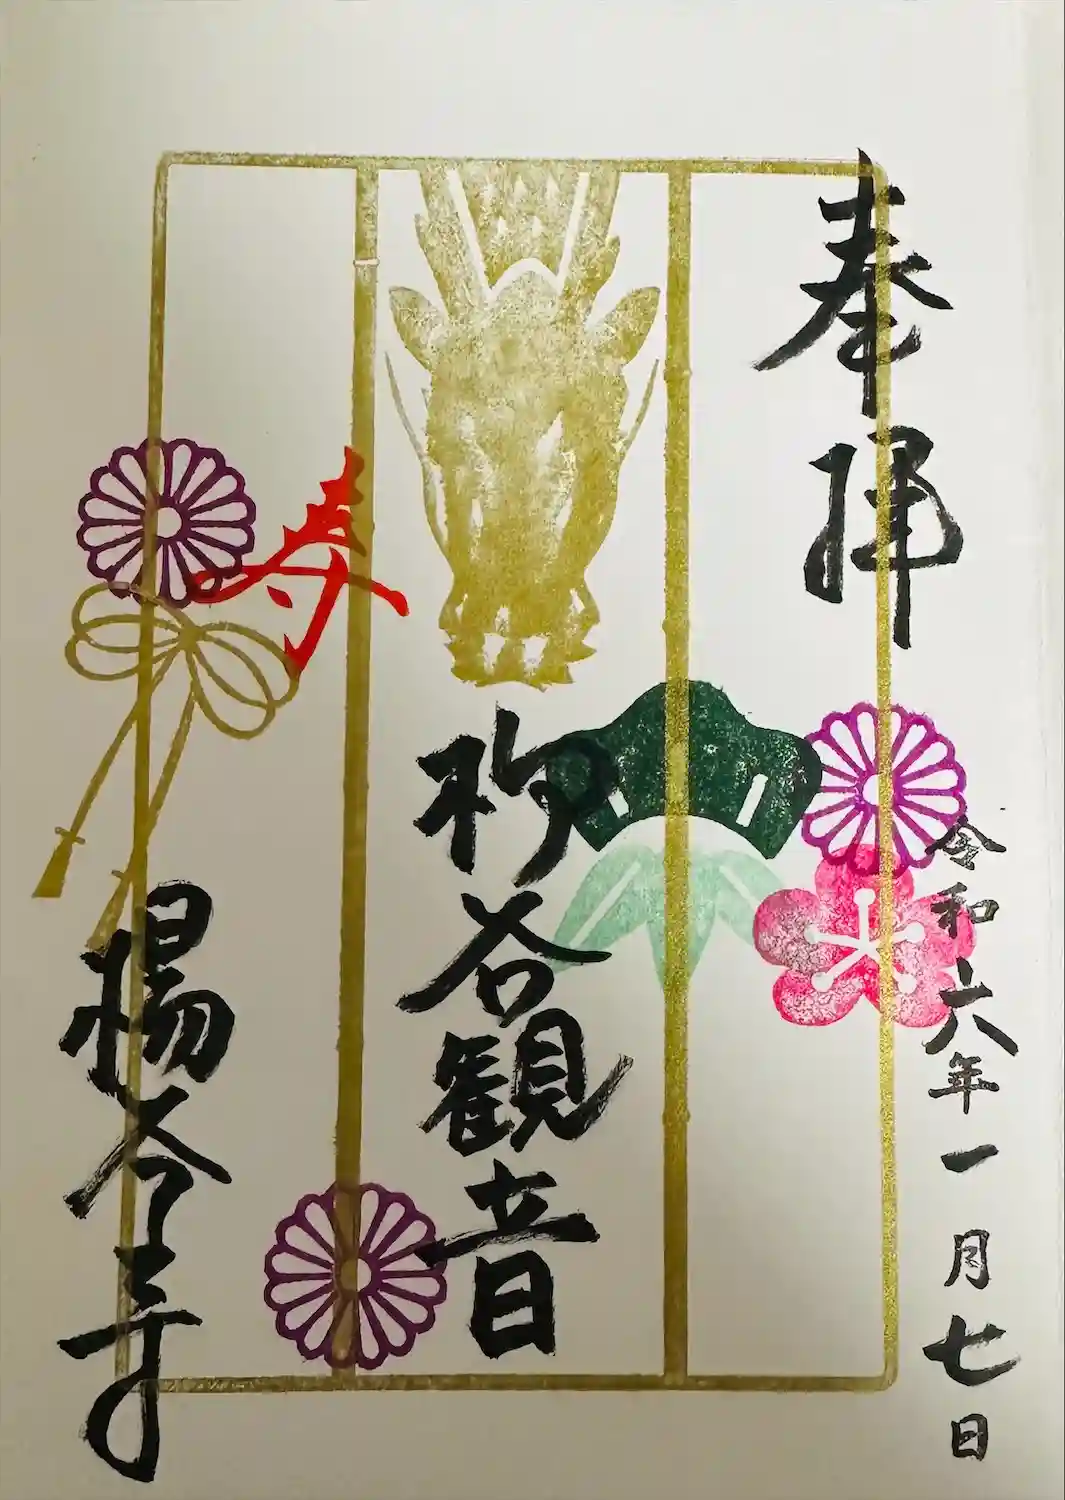 奉拝
令和六年一月七日
柳谷観音
寿
楊谷寺